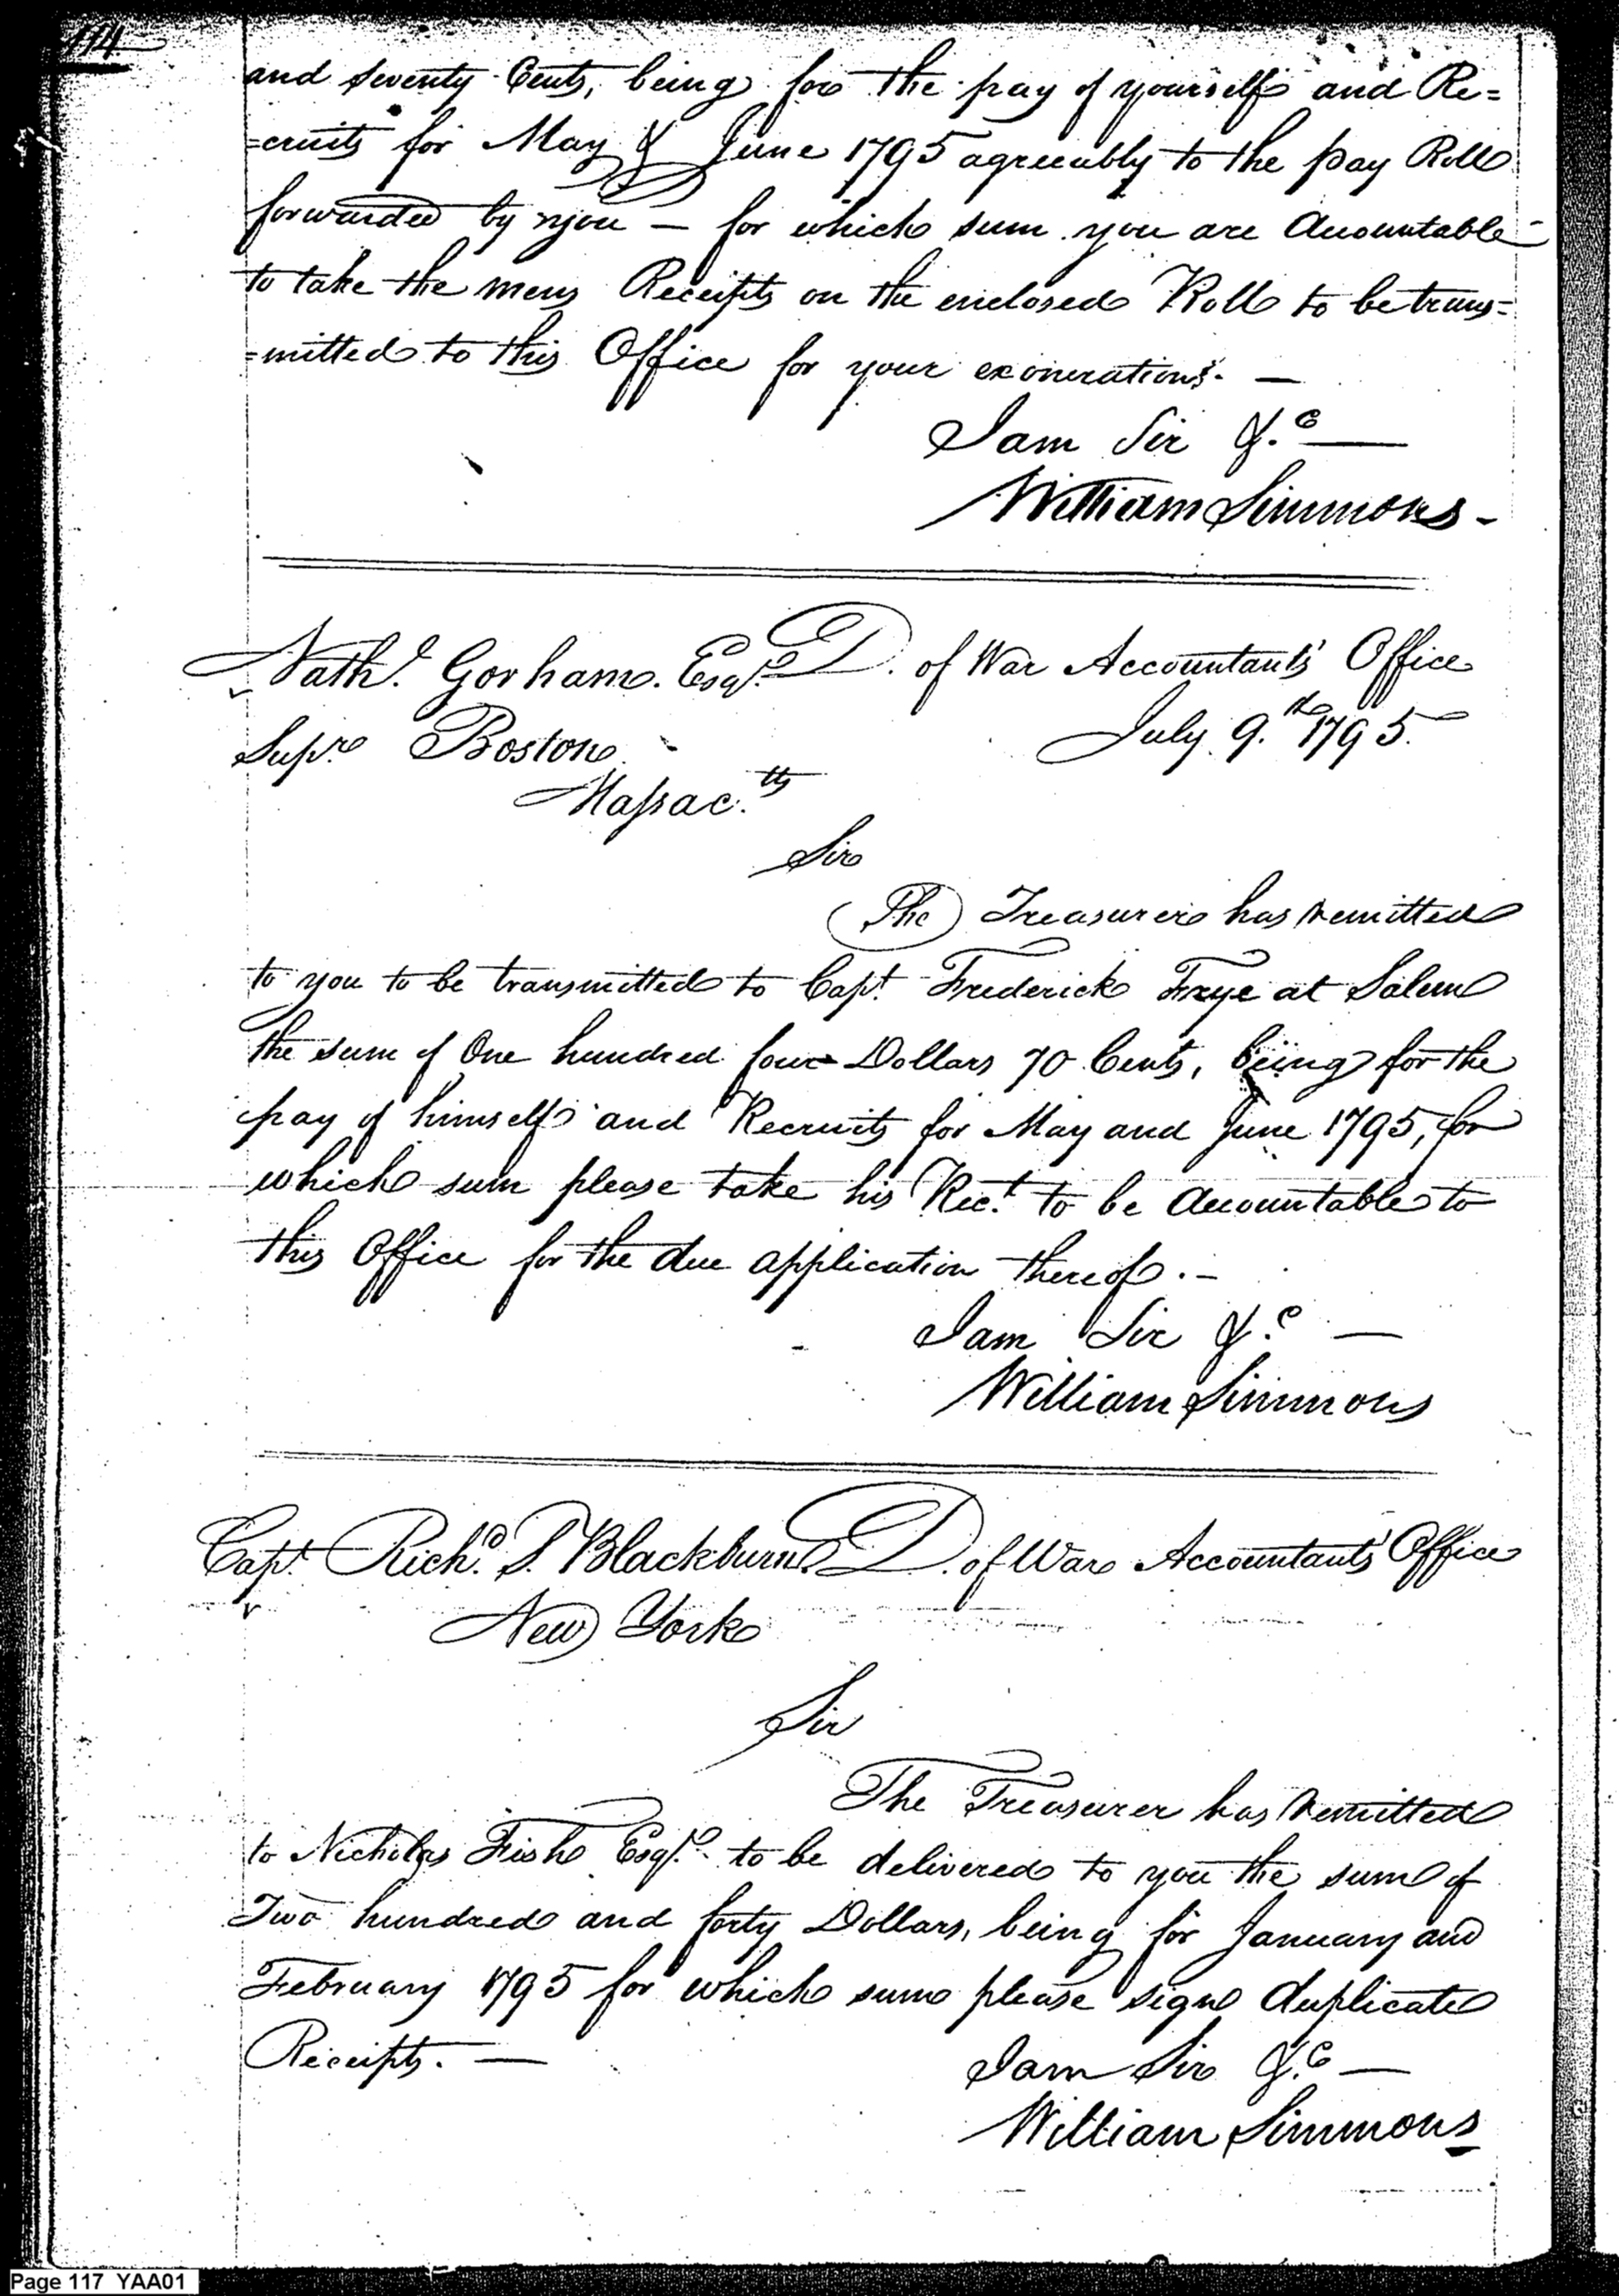 114
and seventy Cents, being for the pay of yourself and Re=
=cruits for May & June 1795 agreeably to the pay Roll
forwarded by you — for which sum you are Accountable
to take the mens Receipts on the enclosed Roll to be trans=
=mitted to this Office for your exonerations. —
I am Sir &.c —
William Simmons -
Nathl. Gorham. Esqr. D. of War Accountants' Office
Supr. Boston July 9.th 1795.
Massac.tts
Sir
The Treasurer has remitted
to you to be transmitted to Capt. Frederick Frye at Salem
the sum of One hundred four Dollars 70 Cents, being for the
pay of himself and Recruits for May and June 1795, for
which sum please take his Rect. to be Accountable to
this Office for the due application thereof. -
I am Sir &.c —
William Simmons
Capt. Richd. S. Blackburn D. of War Accountants' Office
New York
Sir
The Treasurer has remitted
to Nicholas Fish Esqr. to be delivered to you the sum of
Two hundred and forty Dollars, being for January and
February 1795 for which sum please sign duplicate
Receipts. — I am Sir &.c —
William Simmons
Page 117 YAA01